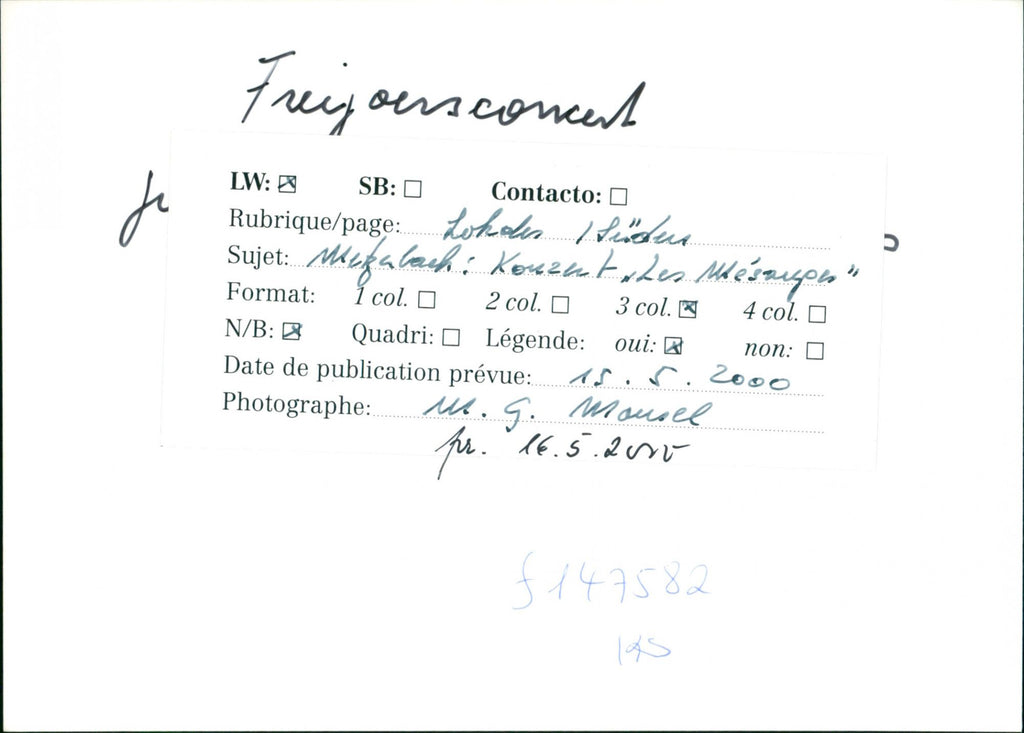 Freijoersconcert
LW: ☒ SB: ☐ Contacto: ☐
Rubrique/page: Lokales / Süden
Sujet: Konzert „Les Mésanges"
Format: 1 col. ☐ 2 col. ☐ 3 col. ☒ 4 col. ☐
N/B: ☒ Quadri: ☐ Légende: oui: ☒ non: ☐
Date de publication prévue: 15. 5. 2000
Photographe: M. G. Mousel
16.5.2000
f147582